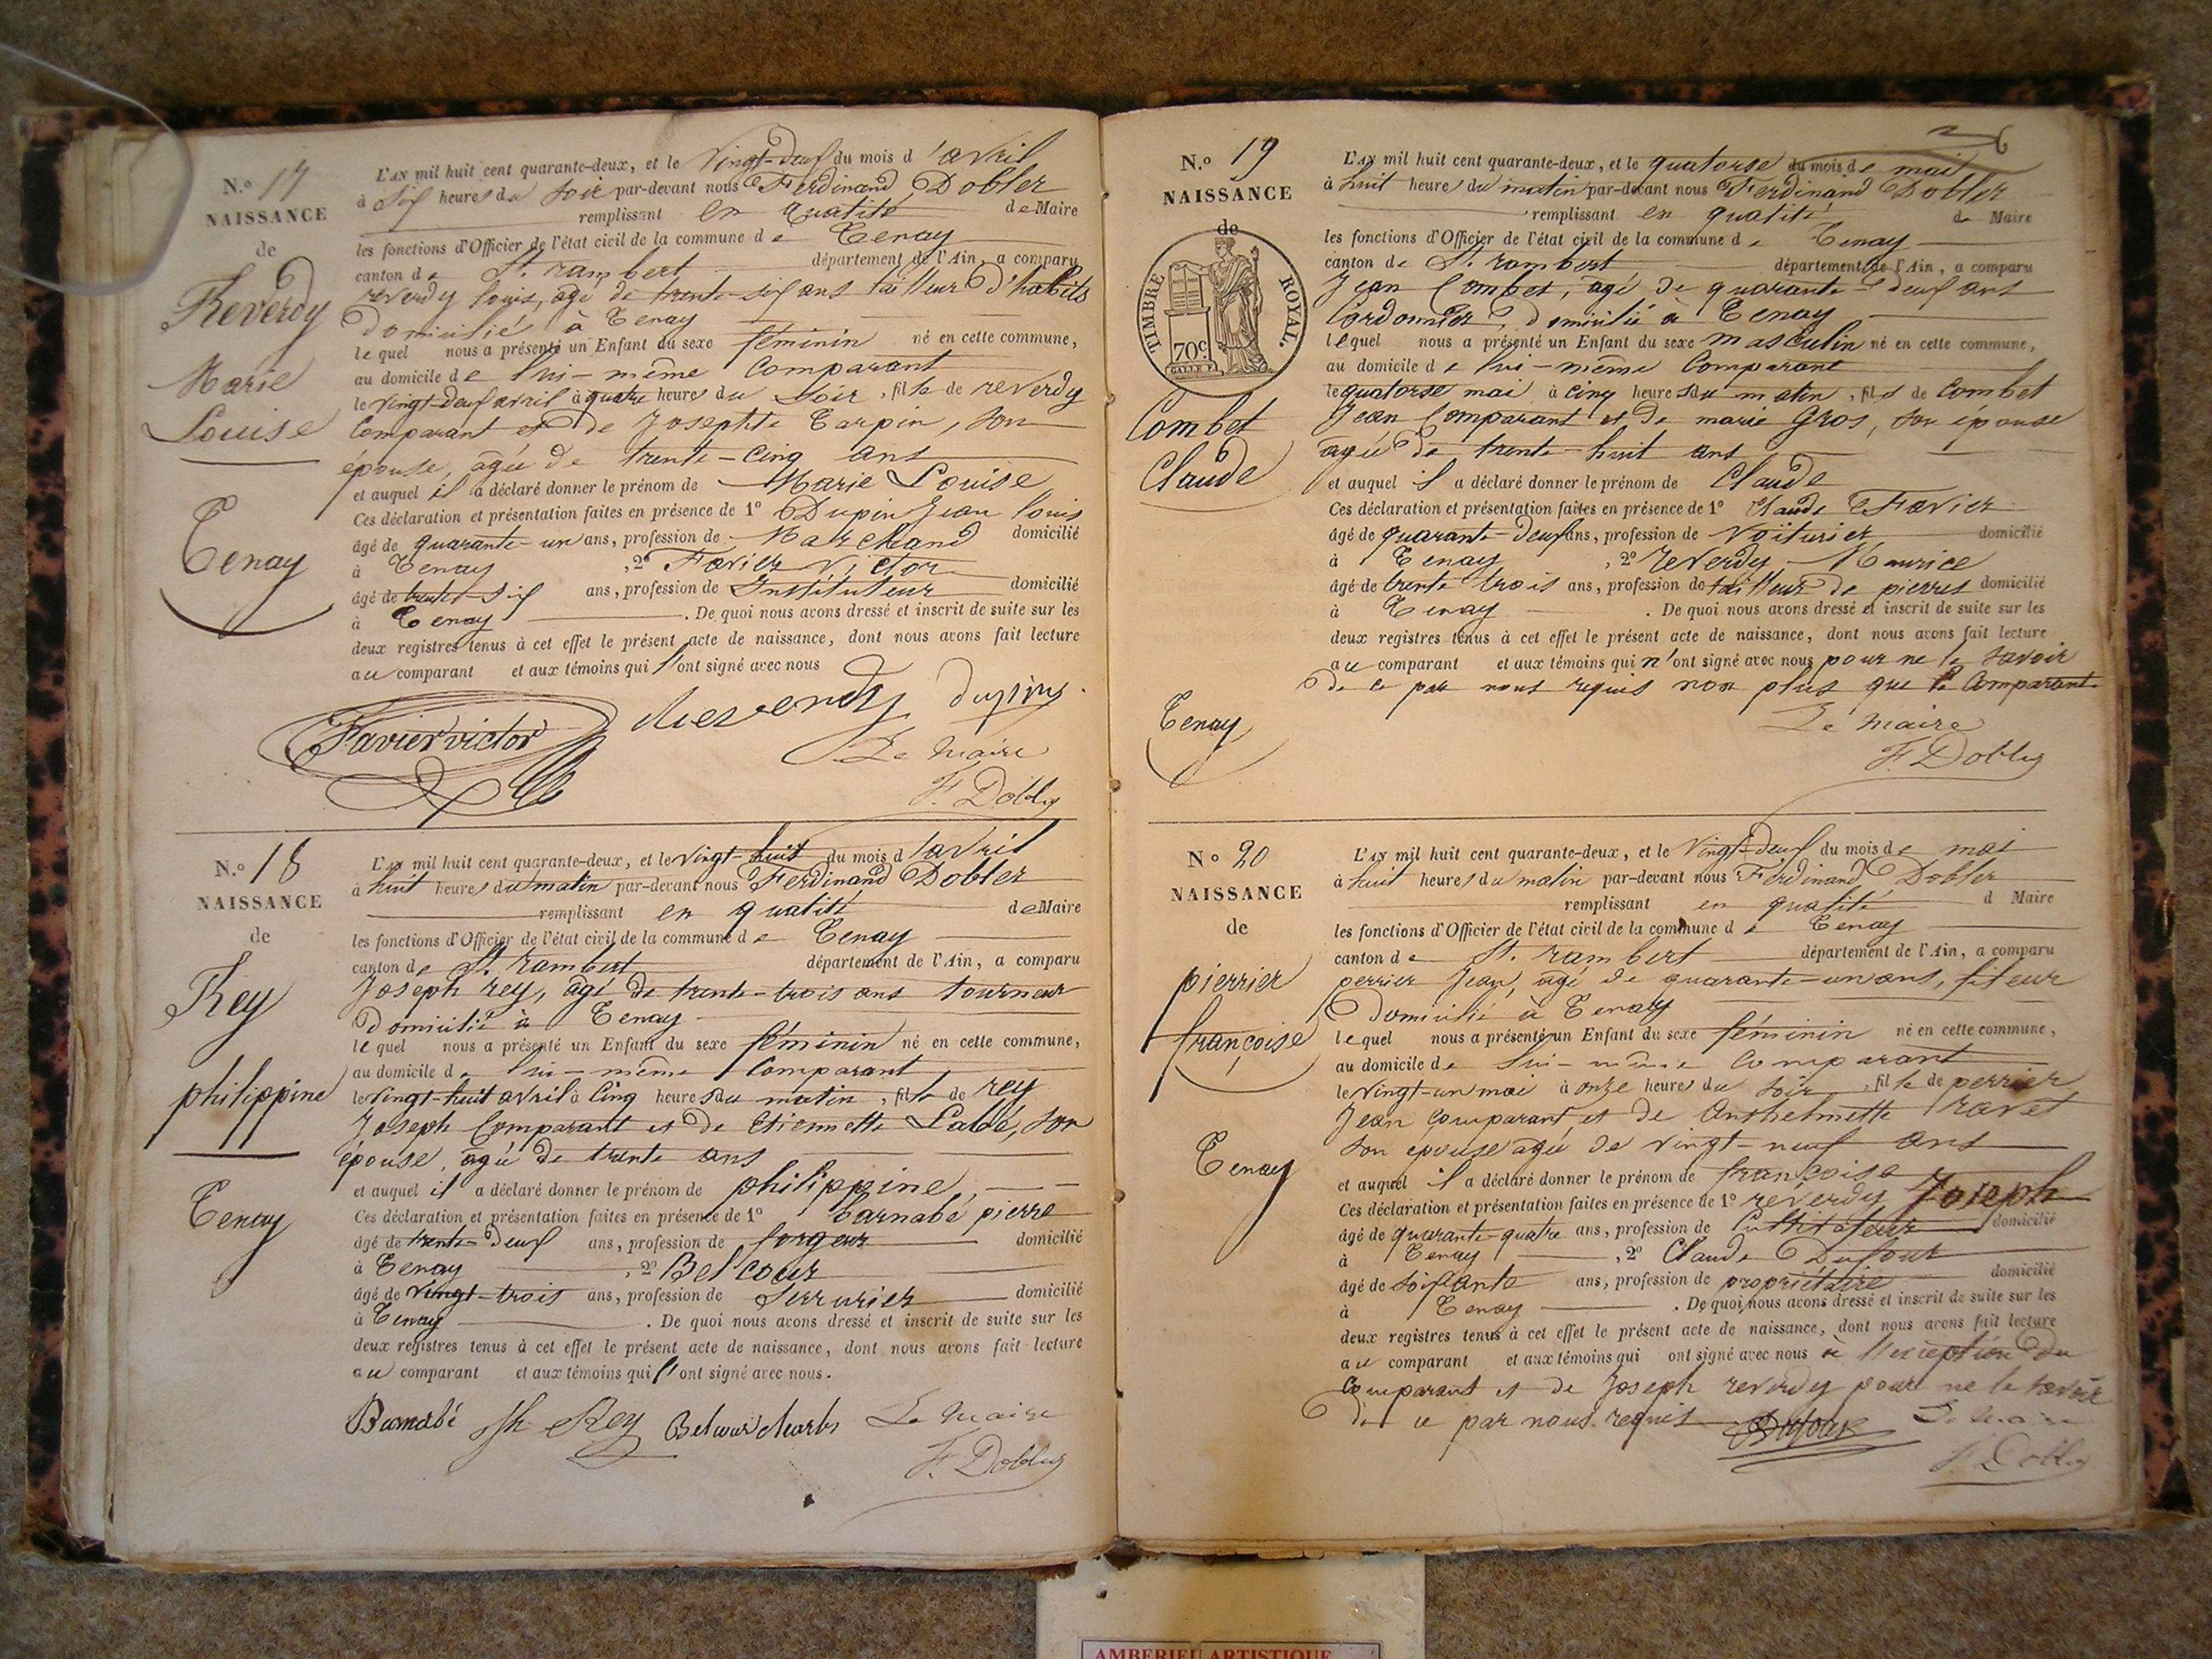 N.o 17
NAISSANCE
de
Reverdy
Marie
Louise
Tenay
L'AN mil huit cent quarante-deux, et le Vingt-deux du mois d'avril
à six heures du soir par-devant nous Ferdinand Dobler
remplissant en qualité de Maire
les fonctions d'Officier de l'état civil de la commune de Tenay
canton de St. rambert département de l'Ain, a comparu
reverdy louis, agé de trente-six ans tailleur d'habits
Domicilié à Tenay
lequel nous a présenté un Enfant du sexe féminin né en cette commune,
au domicile de lui-même Comparant
le vingt-deux avril à quatre heures du soir, fille de reverdy
Comparant et de Josephte Tarpin, son
épouse, agée de trente-cinq ans
et auquel il a déclaré donner le prénom de Marie Louise
Ces déclaration et présentation faites en présence de 1o Dupin Jean louis
âgé de quarante-un ans, profession de Marchand domicilié
à Tenay, 2o Favier Victor
âgé de trente-six ans, profession de Instituteur domicilié
à Tenay. De quoi nous avons dressé et inscrit de suite sur les
deux registres tenus à cet effet le présent acte de naissance, dont nous avons fait lecture
au comparant et aux témoins qui l'ont signé avec nous
Favier victor dupin
Le Maire
F. Dobler
N.o 18
NAISSANCE
de
Rey
philippine
Tenay
L'AN mil huit cent quarante-deux, et le Vingt-huit du mois d'avril
à huit heures du matin par-devant nous Ferdinand Dobler
remplissant en qualité de Maire
les fonctions d'Officier de l'état civil de la commune de Tenay
canton de St. rambert département de l'Ain, a comparu
Joseph rey, agé de trente-trois ans tourneur
domicilié à Tenay
lequel nous a présenté un Enfant du sexe féminin né en cette commune,
au domicile de lui-même Comparant
le vingt-huit avril à Cinq heures du matin, fille de rey
Joseph Comparant et de Etiennette Labé, son
épouse, agée de trente ans
et auquel il a déclaré donner le prénom de philippine
Ces déclaration et présentation faites en présence de 1o barnabé pierre
âgé de trente-deux ans, profession de forgeur domicilié
à Tenay, 2o Belcour
âgé de Vingt-trois ans, profession de Serrurier domicilié
à Tenay. De quoi nous avons dressé et inscrit de suite sur les
deux registres tenus à cet effet le présent acte de naissance, dont nous avons fait lecture
au comparant et aux témoins qui l'ont signé avec nous.
Barnabé Jh Rey Belcour charles Le Maire
F. Dobler
26
N.o 19
NAISSANCE
de
TIMBRE ROYAL.
70c
Combet
Claude
Tenay
L'AN mil huit cent quarante-deux, et le quatorse du mois de mai
à huit heures du matin par-devant nous Ferdinand Dobler
remplissant en qualité de Maire
les fonctions d'Officier de l'état civil de la commune de Tenay
canton de St. rambert département de l'Ain, a comparu
Jean Combet, agé de quarante-deux ans
Cordonnier, domicilié à Tenay
lequel nous a présenté un Enfant du sexe masculin né en cette commune,
au domicile de lui-même Comparant
le quatorse mai à cinq heures du matin, fils de Combet
Jean Comparant et de marie Gros, son épouse
agée de trente-huit ans
et auquel il a déclaré donner le prénom de Claude
Ces déclaration et présentation faites en présence de 1o Claude Favier
âgé de quarante-deux ans, profession de Voiturier domicilié
à Tenay, 2o reverdy Maurice
âgé de trente trois ans, profession de tailleur de pierres domicilié
à Tenay. De quoi nous avons dressé et inscrit de suite sur les
deux registres tenus à cet effet le présent acte de naissance, dont nous avons fait lecture
au comparant et aux témoins qui n'ont signé avec nous pour ne le savoir
de ce par nous requis non plus que le Comparant
Le Maire
F. Dobler
No 20
NAISSANCE
de
pierrier
françoise
Tenay
L'AN mil huit cent quarante-deux, et le Vingt-deux du mois de mai
à huit heures du matin par-devant nous Ferdinand Dobler
remplissant en qualité d Maire
les fonctions d'Officier de l'état civil de la commune de Tenay
canton de St. rambert département de l'Ain, a comparu
perrier Jean, agé de quarante-un ans, fileur
Domicilié à Tenay
lequel nous a présenté un Enfant du sexe féminin né en cette commune,
au domicile de lui-même Comparant
le vingt-un mai à onze heures du soir, fille de perrier
Jean Comparant et de Anthelmette ravet
son épouse agée de vingt-neuf ans
et auquel il a déclaré donner le prénom de françoise
Ces déclaration et présentation faites en présence de 1o reverdy Joseph
âgé de quarante-quatre ans, profession de Cultivateur domicilié
à Tenay, 2o Claude Dufour
âgé de soixante ans, profession de propriétaire domicilié
à Tenay. De quoi nous avons dressé et inscrit de suite sur les
deux registres tenus à cet effet le présent acte de naissance, dont nous avons fait lecture
au comparant et aux témoins qui ont signé avec nous à l'exception du
Comparant et de Joseph reverdy pour ne le savoir
de ce par nous requis Dufour Le Maire
F. Dobler
AMBERIEU ARTISTIQUE